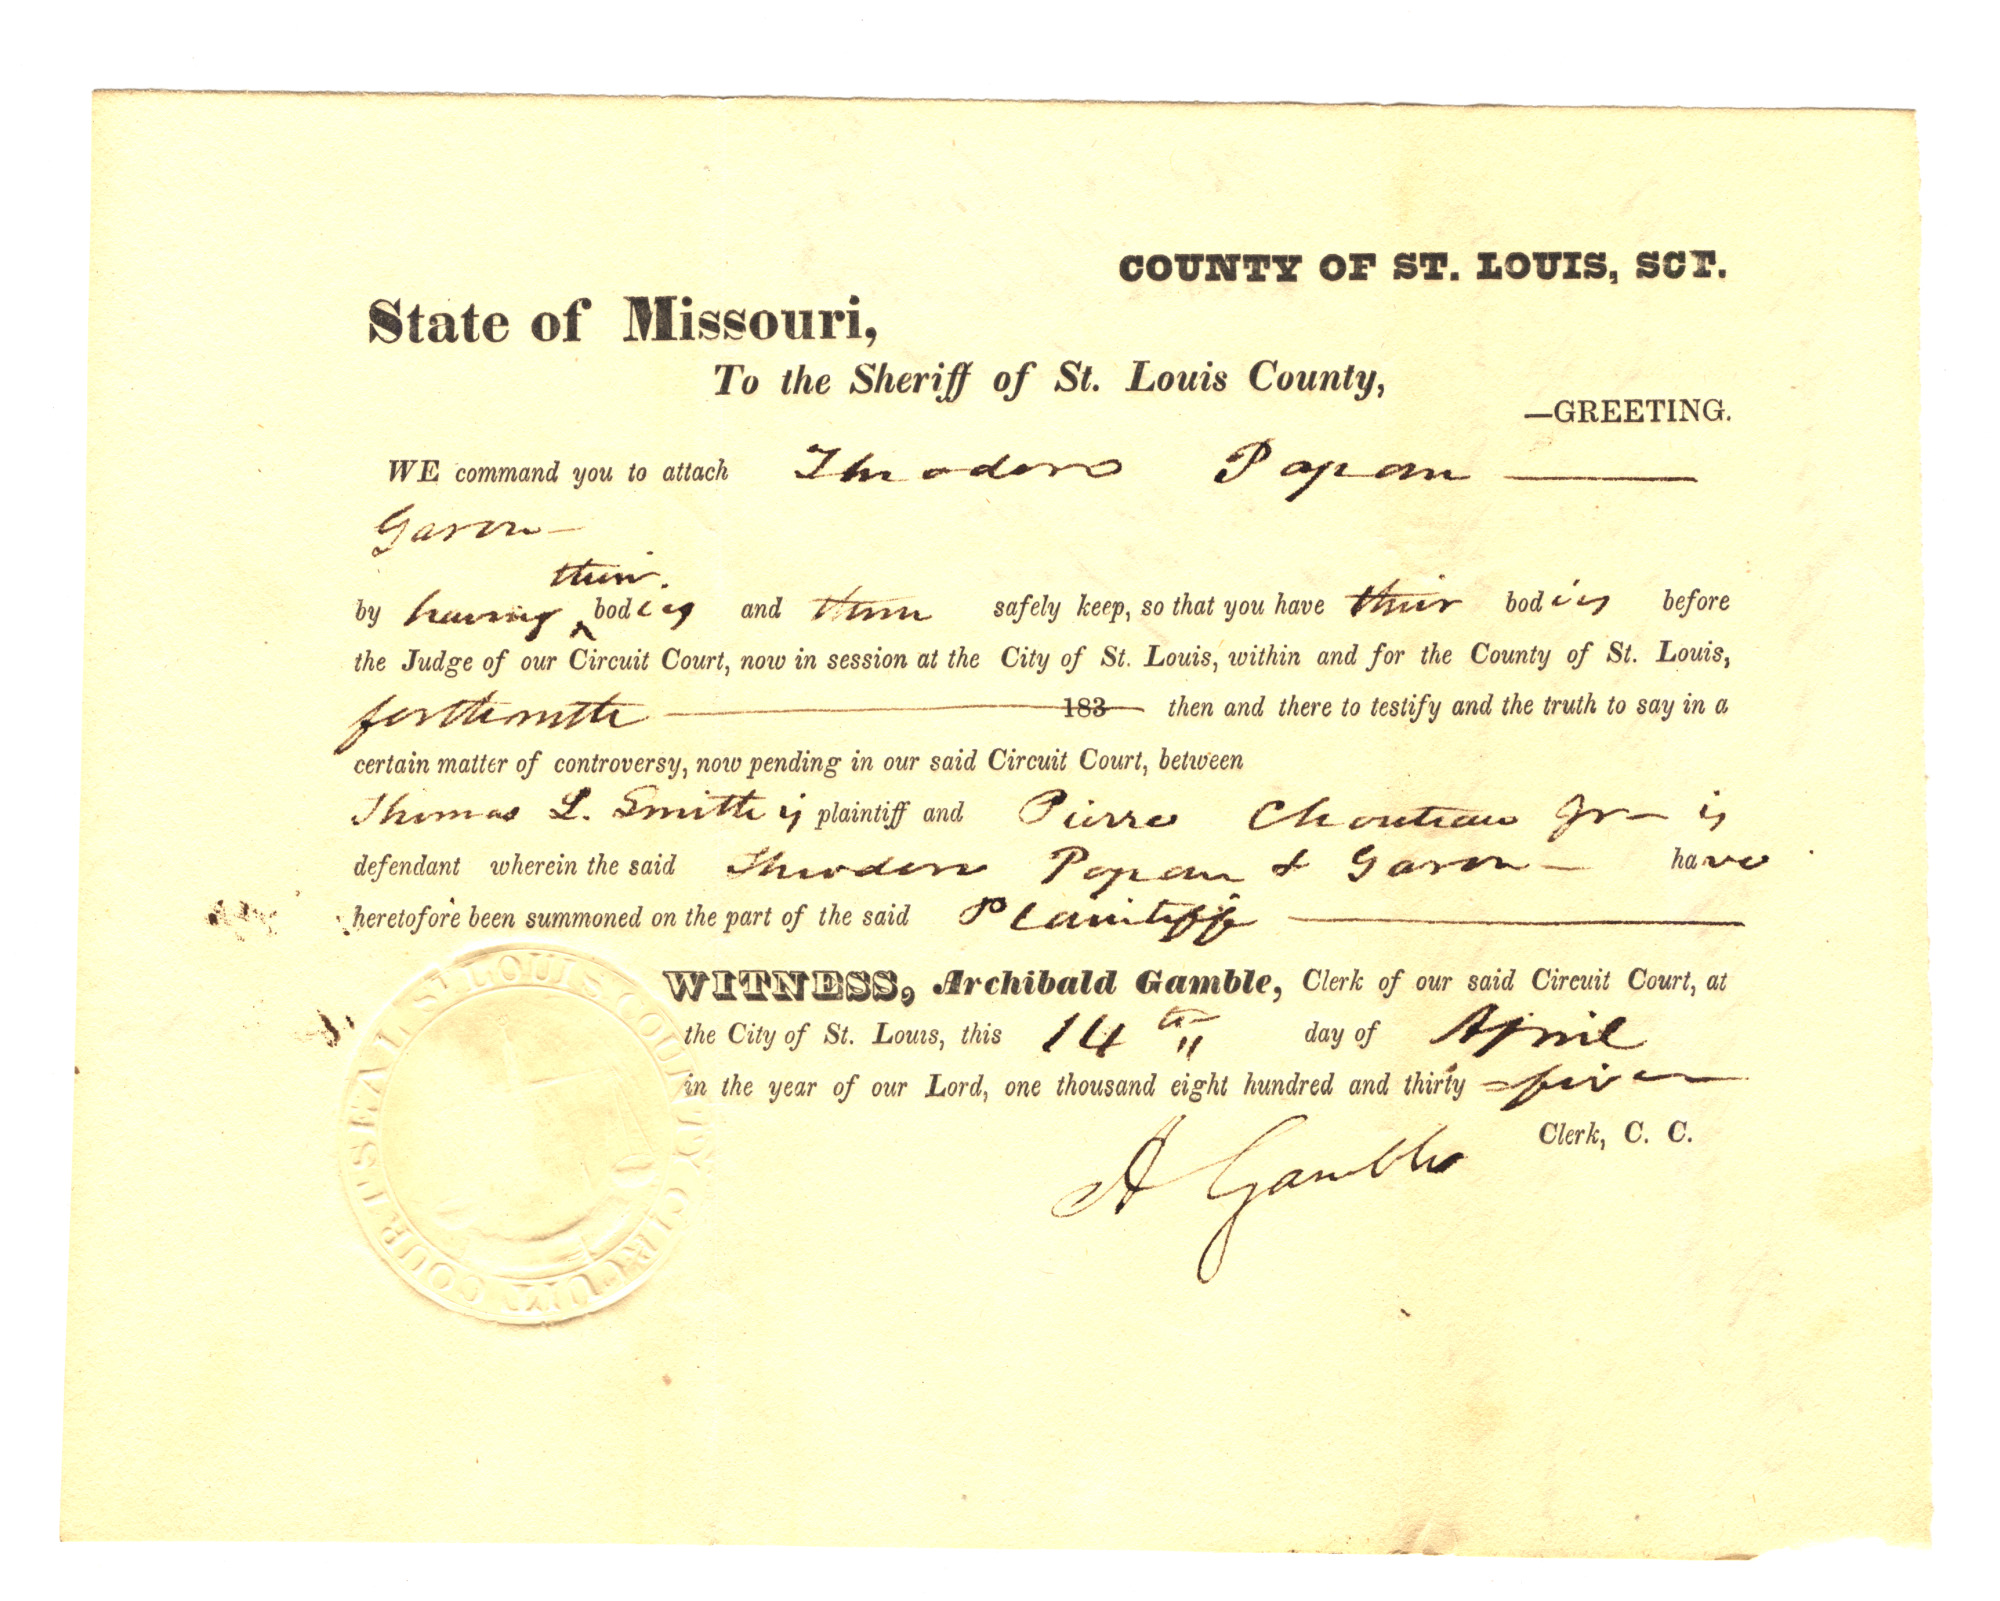 COUNTY OF ST. LOUIS, SCT.
State of Missouri,
To the Sheriff of St. Louis County,
—GREETING.
WE command you to attach Theodore Papan
Garon
their
by having bodies and them safely keep, so that you have their bodies before
the Judge of our Circuit Court, now in session at the City of St. Louis, within and for the County of St. Louis,
forthwith 183 then and there to testify and the truth to say in a
certain matter of controversy, now pending in our said Circuit Court, between
Thomas L. Smith is plaintiff and Pierre Chouteau Jr is
defendant wherein the said Theodore Papan & Garon have
heretofore been summoned on the part of the said Plaintiff
WITNESS, Archibald Gamble, Clerk of our said Circuit Court, at
the City of St. Louis, this 14th day of April
in the year of our Lord, one thousand eight hundred and thirty-five
Clerk, C. C.
A Gamble
ST LOUIS COUNTY CIRCUIT COURT'S SEAL